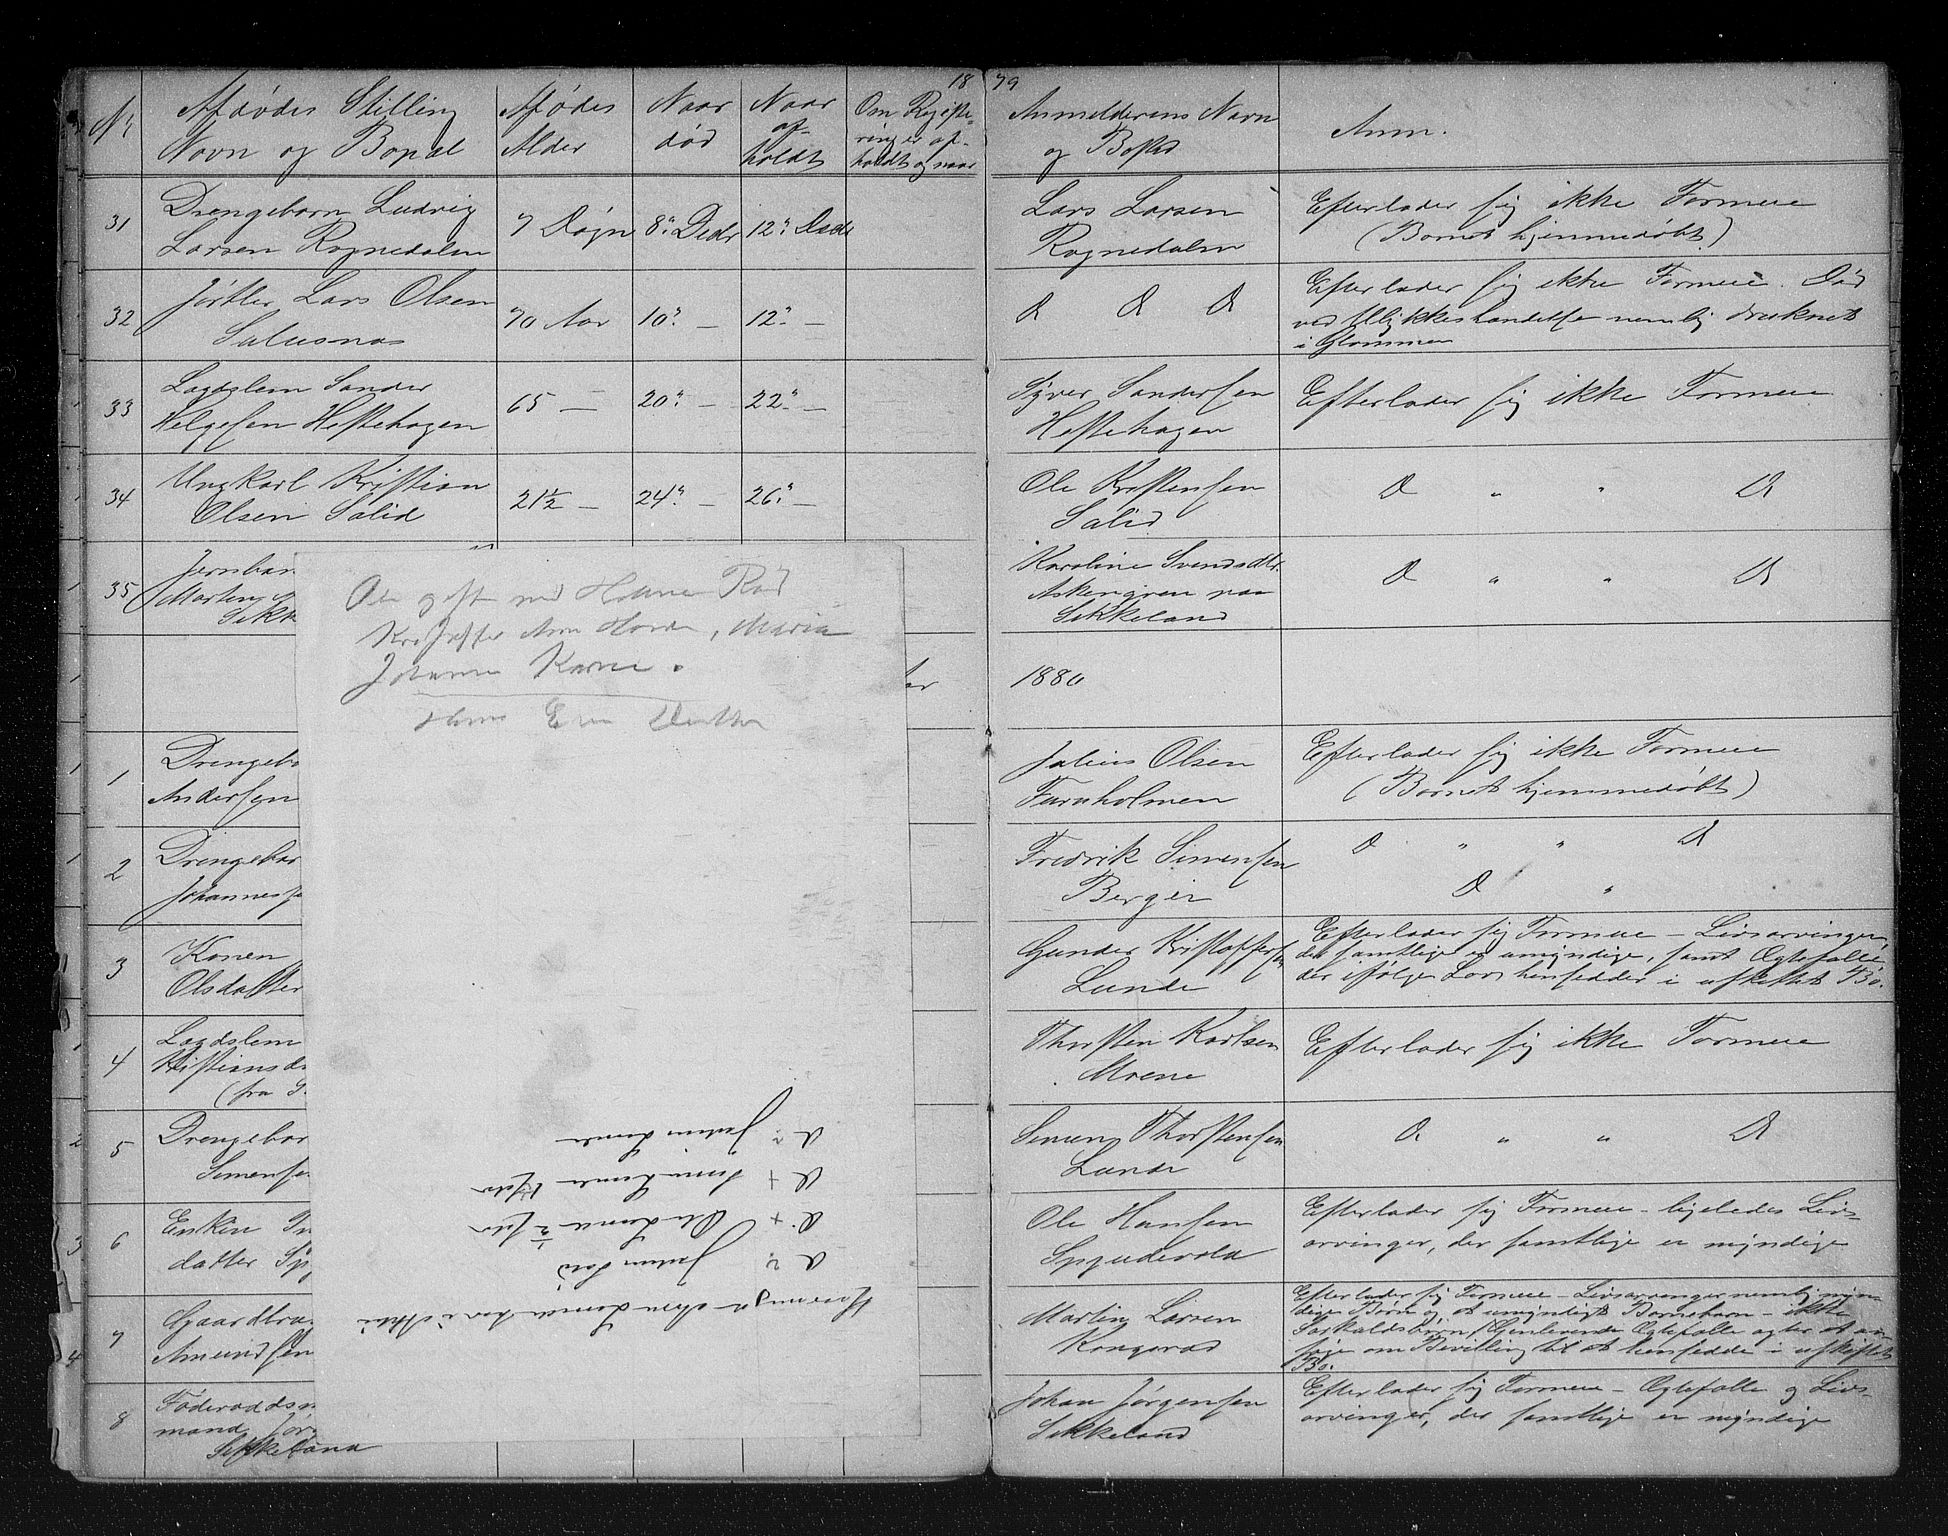 18 79
No
Afdødes Stilling
Navn og Bopæl
Afdødes
Alder
Naar
død
Naar
af-
holdt
Om Registe-
ring er af-
holdt og naar
Anmelderens Navn
og Bosted
Anm.
31
Drengebarn Ludvig
Larsen Rognedalen
7 Døgn
8de Decbr
12te Decbr
Lars Larsen
Rognedalen
Efterlader sig ikke Formue
(Barnet hjemmedøbt)
32
Lars Olsen
70 Aar
10de —
12te —
D D D
Efterlader sig ikke Formue. Død
ved Ulykkeshændelse nemlig druknet
i Glommen
33
Lægdslem Sander
Helgesen Hestehagen
65 —
20de —
22de —
Syver Sandersen
Hestehagen
Efterlader sig ikke Formue
34
Ungkarl Kristian
Olsen Salid
21½ —
24de —
26de —
Ole Kristensen
Salid
D " " D
35
Jernban
Martin
Sikk
Karoline Svendsdtr.
Askengren paa
Sikkeland
D " " D
1880
1
Drengeba
Andersen
Julius Olsen
Furuholmen
Efterlader sig ikke Formue
(Barnet hjemmedøbt)
2
Drengebar
Johannesse
Fredrik Simensen
Berger
D " " D
D "
3
Konen
Olsdatter
Gunder Kristoffersen
Lunde
Efterlader sig Formue — Livsarvinger,
der samtlige er umyndige, samt Ægtefælle
der ifølge Lov hensidder i uskiftet Bo.
4
Lægdslem
Kristiansd
(fra S
Thorsten Karlsen
Moene
Efterlader sig ikke Formue
5
Drengebar
Simense
Simen Thorstensen
Lunde
D " " D
6
Enken
datter Sp
Ole Hansen
Spydevold
Efterlader sig Formue — ligeledes Livs-
arvinger, der samtlige er myndige
7
Gaardbru
Amundsen
Martin Larsen
Kongerød
Efterlader sig Formue — Livsarvinger nemlig myn-
dige Børn og et umyndigt Barnebarn — ikke
Særkuldsbørn. Gjenlevende Ægtefælle agter at an-
søge om Bevilling til at hensidde i uskiftet
Bo.
8
Føderaads
mand Jør
Sikkeland
Johan Jørgensen
Sikkeland
Efterlader sig Formue — Ægtefælle og Livs-
arvinger, der samtlige er myndige
Ole gift med Hanna Rød
Kristoffer Maria
Johanne Karne.